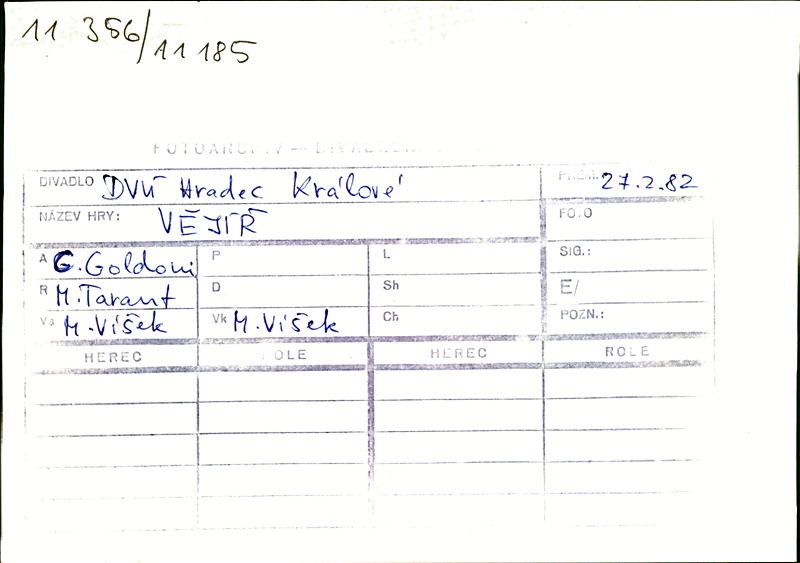 11 356/11 185
FOTOARCHIV — DIVADELNÍ
DIVADLO DVÚ Hradec Králové PREM. 27.2.82
NÁZEV HRY: VĚJÍŘ FOTO
A G. Goldoni P L SIG.:
R M. Tarant D Sh E/
Vs M. Víšek Vk M. Víšek Ch POZN.:
HEREC ROLE HEREC ROLE